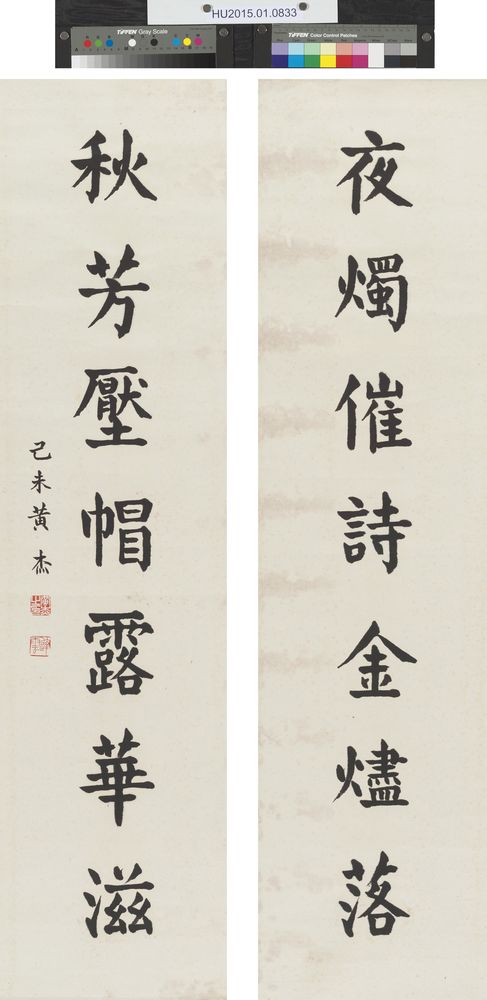 HU2015.01.0833
TIFFEN Gray Scale
TIFFEN Color Control Patches
夜燭催詩金燼落
秋芳壓帽露華滋
己未黃杰